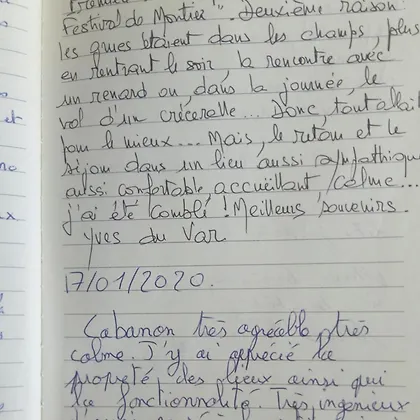 Festival de Montier". Deuxième raison:
les grues étaient dans les champs, plus
en rentrant le soir, la rencontre avec
un renard ou, dans la journée, le
vol d'un crécerelle... Donc, tout allait
pour le mieux... Mais, le retour et le
séjour dans un lieu aussi sympathique
aussi confortable accueillant / calme...
j'ai été comblé! Meilleurs souvenirs.
Yves du Var
17/01/2020.
Cabanon très agréable, très
calme. J'y ai apprécié la
propreté des lieux ainsi que
la fonctionnalité. Très ingénieux